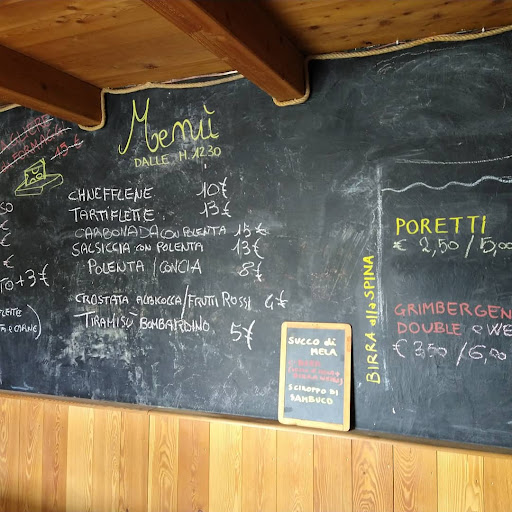 15€
Menù
DALLE H. 12.30
CHNEFFLENE 10€
TARTIFLETTE 13€
CARBONADA CON POLENTA 15€
SALSICCIA CON POLENTA 13€
POLENTA / CONCIA 8€
CROSTATA ALBICOCCA/FRUTTI ROSSI 4€
TIRAMISÙ BOMBARDINO 5€
SO
€
€
€
TO + 3€
BIRRA alla SPINA
PORETTI
€ 2,50 / 5,00
GRIMBERGEN
DOUBLE e WE
€ 3,50 / 6,00
SUCCO di
MELA
SCIROPPO DI
SAMBUCO